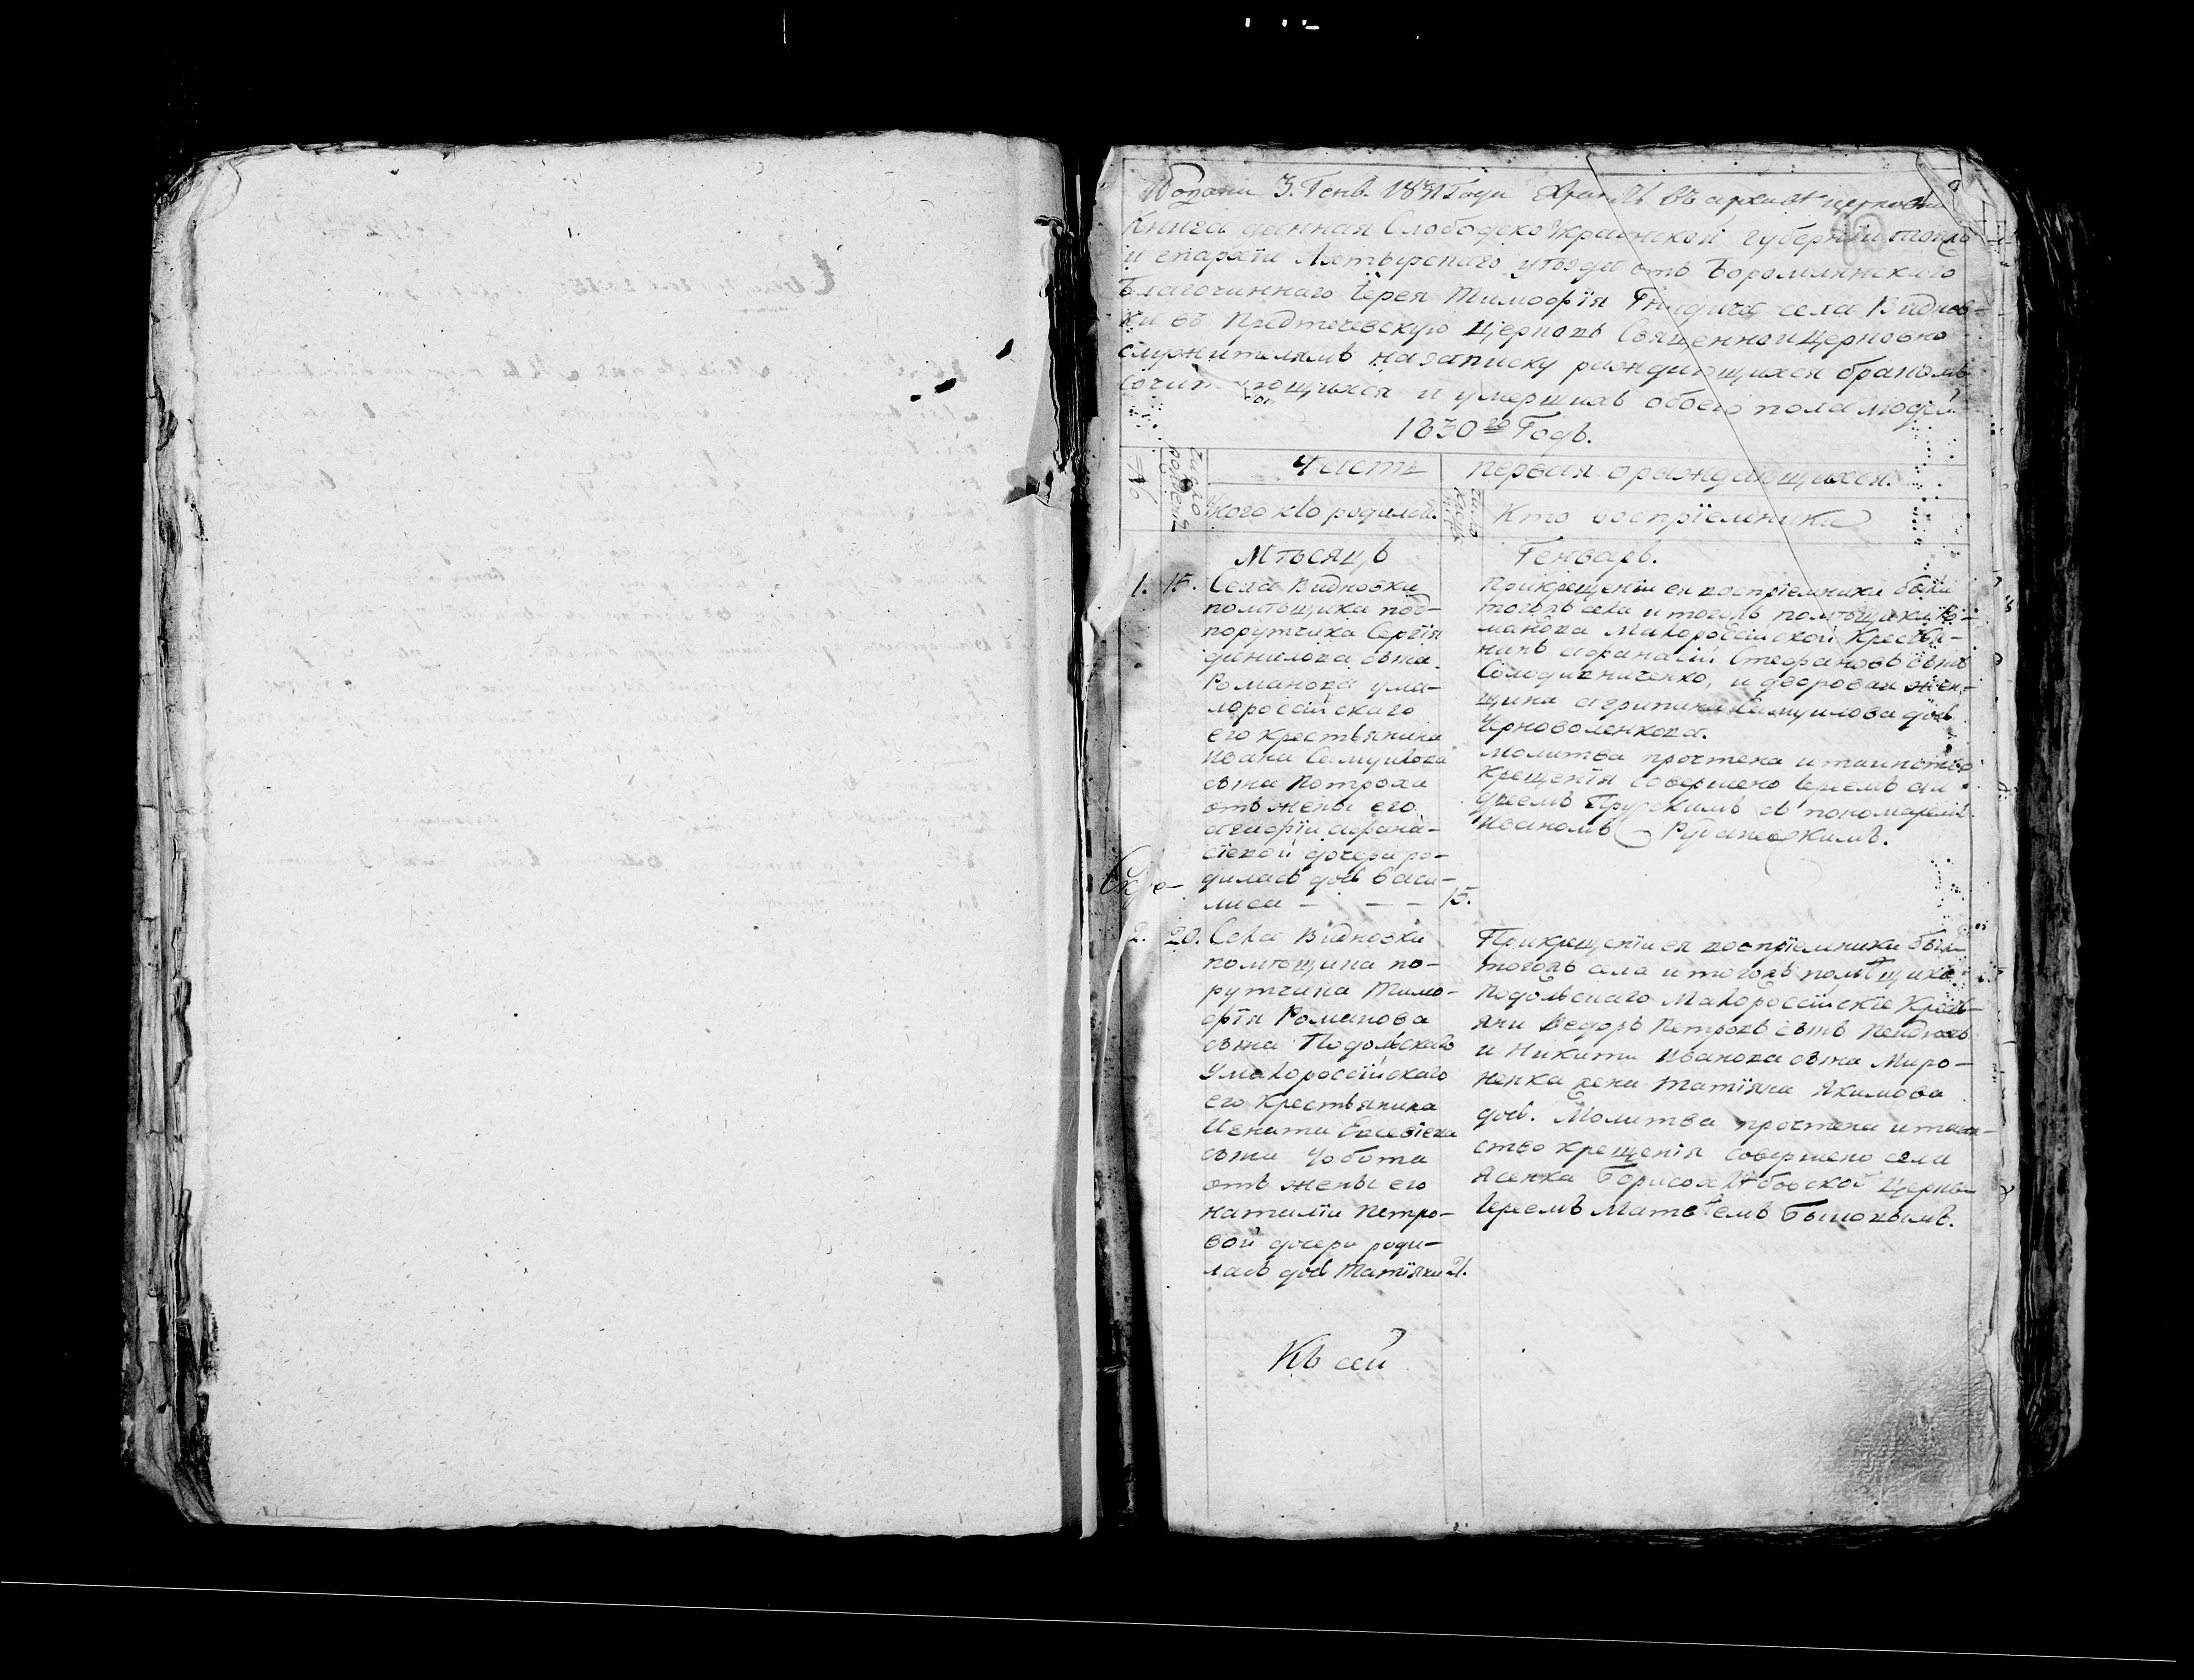 Генв. 1831 Года въ архивѣ церковн
Книга данная Слободско Украинской губернїи тояжъ
и епархїи Ахтырскаго уѣзда отъ Боромлянскаго
Благочиннаго Iерея Тимофїя Гнѣдича села Виднов-
ки въ Предтечевскую Церковь Священно и Церковно
служителямъ на записку раждающихся бракомъ
и умершихъ обоего пола людей
1830го Годъ.
№
Число рожденія
Часть первая о раждающихся.
У кого кто родился.
Кто воспрїемники
Мѣсяцъ Генварь.
1. 15. Села Видновки
помѣщика под-
порутчика Сергїя
Данилова сына
Романова у ма-
лоросcійскаго
его крестьянина
Ивана Самуилова
сына Потроха
отъ жены его
Агафїи Афана-
сїевой дочери ро-
дилась дочь Васи-
лиса - - - 15.
При крещенїи ея воспрїемники были
тогожъ села и тогожъ помѣщика Ро-
манова Малороссійской Крестья-
нинъ Афанасій Стефановъ сынъ
и дворовая жен-
щина Агрипина Самуилова дочь
Черноволенкова.
Молитва прочтена и таинство
крещенїя совершено Iереемъ Ан-
дреемъ съ пономаремъ
Иваномъ Рубановскимъ.
2. 20. Села Видновки
помѣщика по-
рутчика Тимо-
фїя Романова
сына Подольскаго
у Малороссійскаго
его Крестьянина
Игната Евсевїева
сына Чобота
отъ жены его
Наталїи Петро-
вой дочери роди-
лась дочь Татїяна 21.
При крещенїи ея воспрїемники были
тогожъ села и тогожъ помѣщика
Подольскаго Малороссійскїе Кресть-
яни Ѳедоръ Петровъ сынъ
и Никиты Иванова сына Миро-
ненка жена Татїяна Якимова
дочь. Молитва прочтена и таин-
ство крещенїя совершено села
Ясенка Борисоглѣбовской Церкви
Iереемъ Матвѣемъ
Къ сей